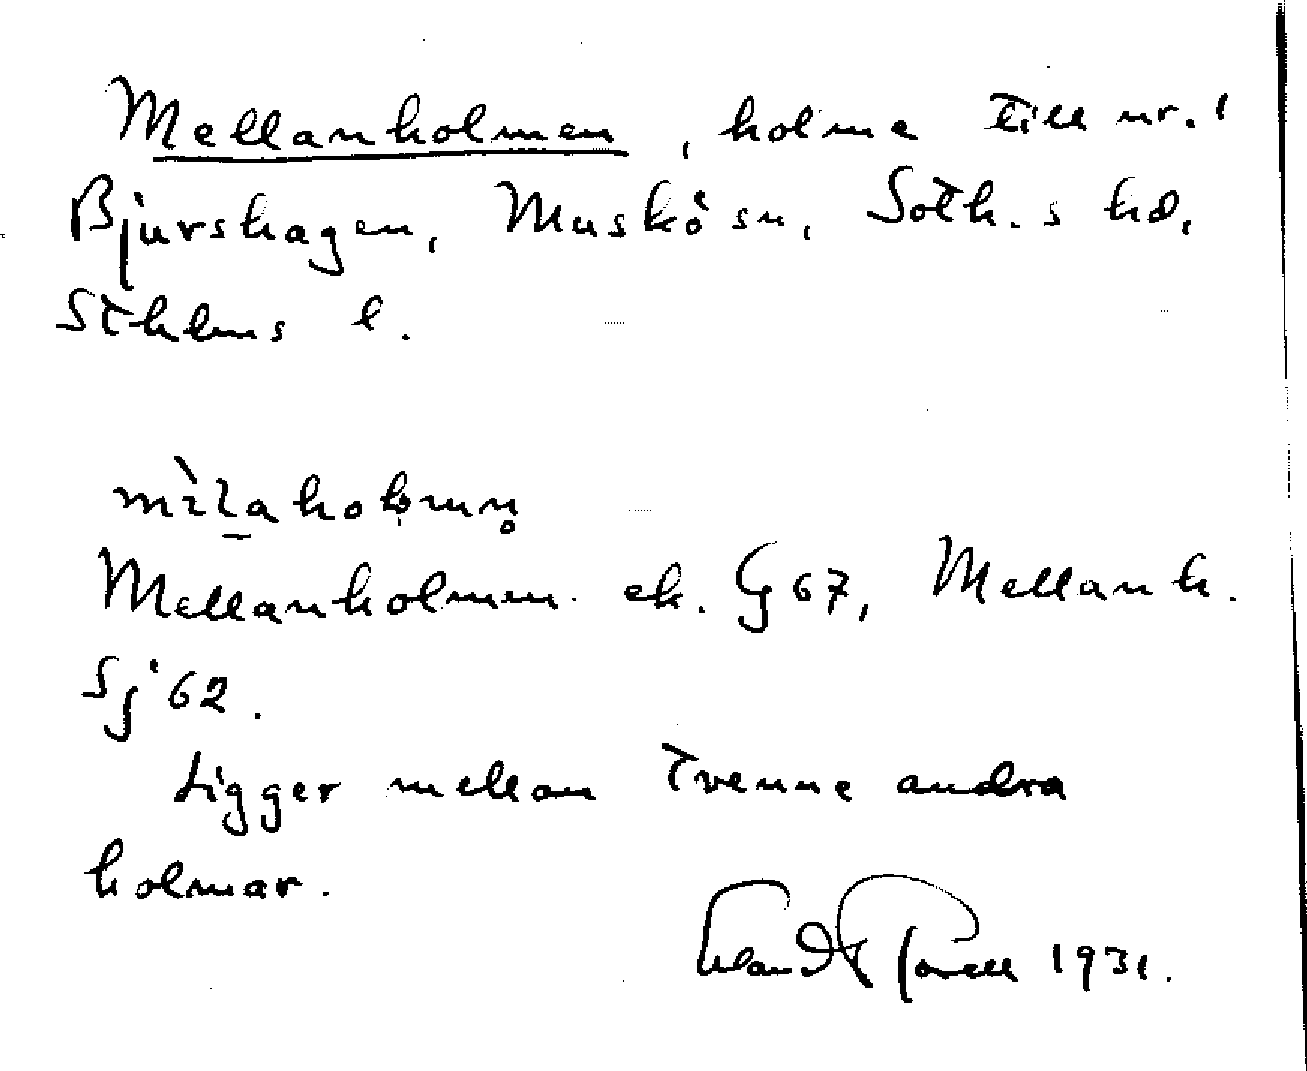 Mellanholmen, holme till nr. 1
Bjurshagen, Muskö sn, Soth.s hd,
Sthlms l.
Mellanholmen ek. G 67, Mellanh.
Sj 62.
Ligger mellan tvenne andra
holmar.
1931.